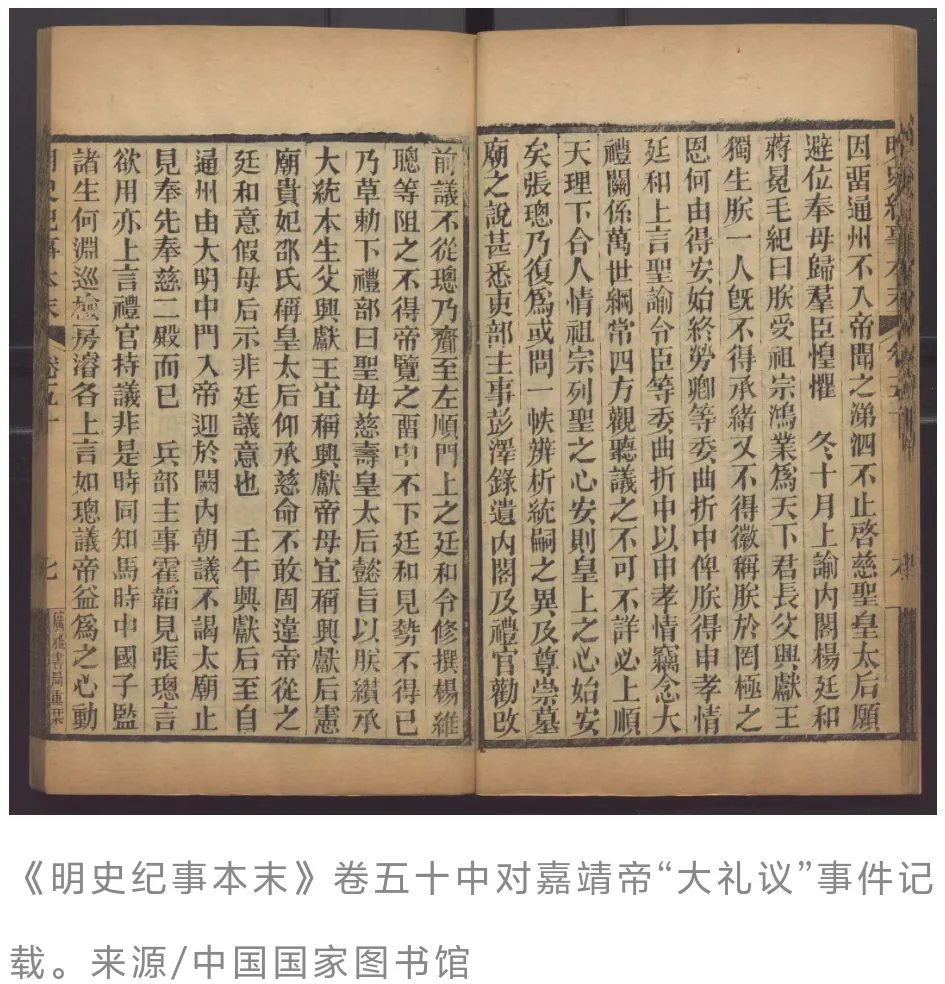 因畱通州不入帝聞之涕泗不止啓慈聖皇太后願
避位奉母歸羣臣惶懼　冬十月上諭內閣楊廷和
蔣冕毛紀曰朕受祖宗鴻業爲天下君長父興獻王
獨生朕一人旣不得承緒又不得徽稱朕於罔極之
恩何由得安始終勞卿等委曲折中俾朕得申孝情
廷和上言聖諭令臣等委曲折中以申孝情竊念大
禮關係萬世綱常四方觀聽議之不可不詳必上順
天理下合人情祖宗列聖之心安則皇上之心始安
矣張璁乃復爲或問一帙辨析統嗣之異及尊崇墓
廟之說甚悉吏部主事彭澤錄遺內閣及禮官勸改
前議不從璁乃齎至左順門上之廷和令修撰楊維
聰等阻之不得帝覽之畱中不下廷和見勢不得已
乃草勅下禮部曰聖母慈壽皇太后懿旨以朕纘承
大統本生父興獻王宜稱興獻帝母宜稱興獻后憲
廟貴妃邵氏稱皇太后仰承慈命不敢固違帝從之
廷和意假母后示非廷議意也　壬午興獻后至自
通州由大明中門入帝迎於闕內朝議不謁太廟止
見奉先奉慈二殿而已　兵部主事霍韜見張璁言
欲用亦上言禮官持議非是時同知馬時中國子監
諸生何淵巡檢房濬各上言如璁議帝益爲之心動
明史紀事本末
卷五十
七
廣雅書局重栞
《明史纪事本末》卷五十中对嘉靖帝“大礼议”事件记
载。来源/中国国家图书馆